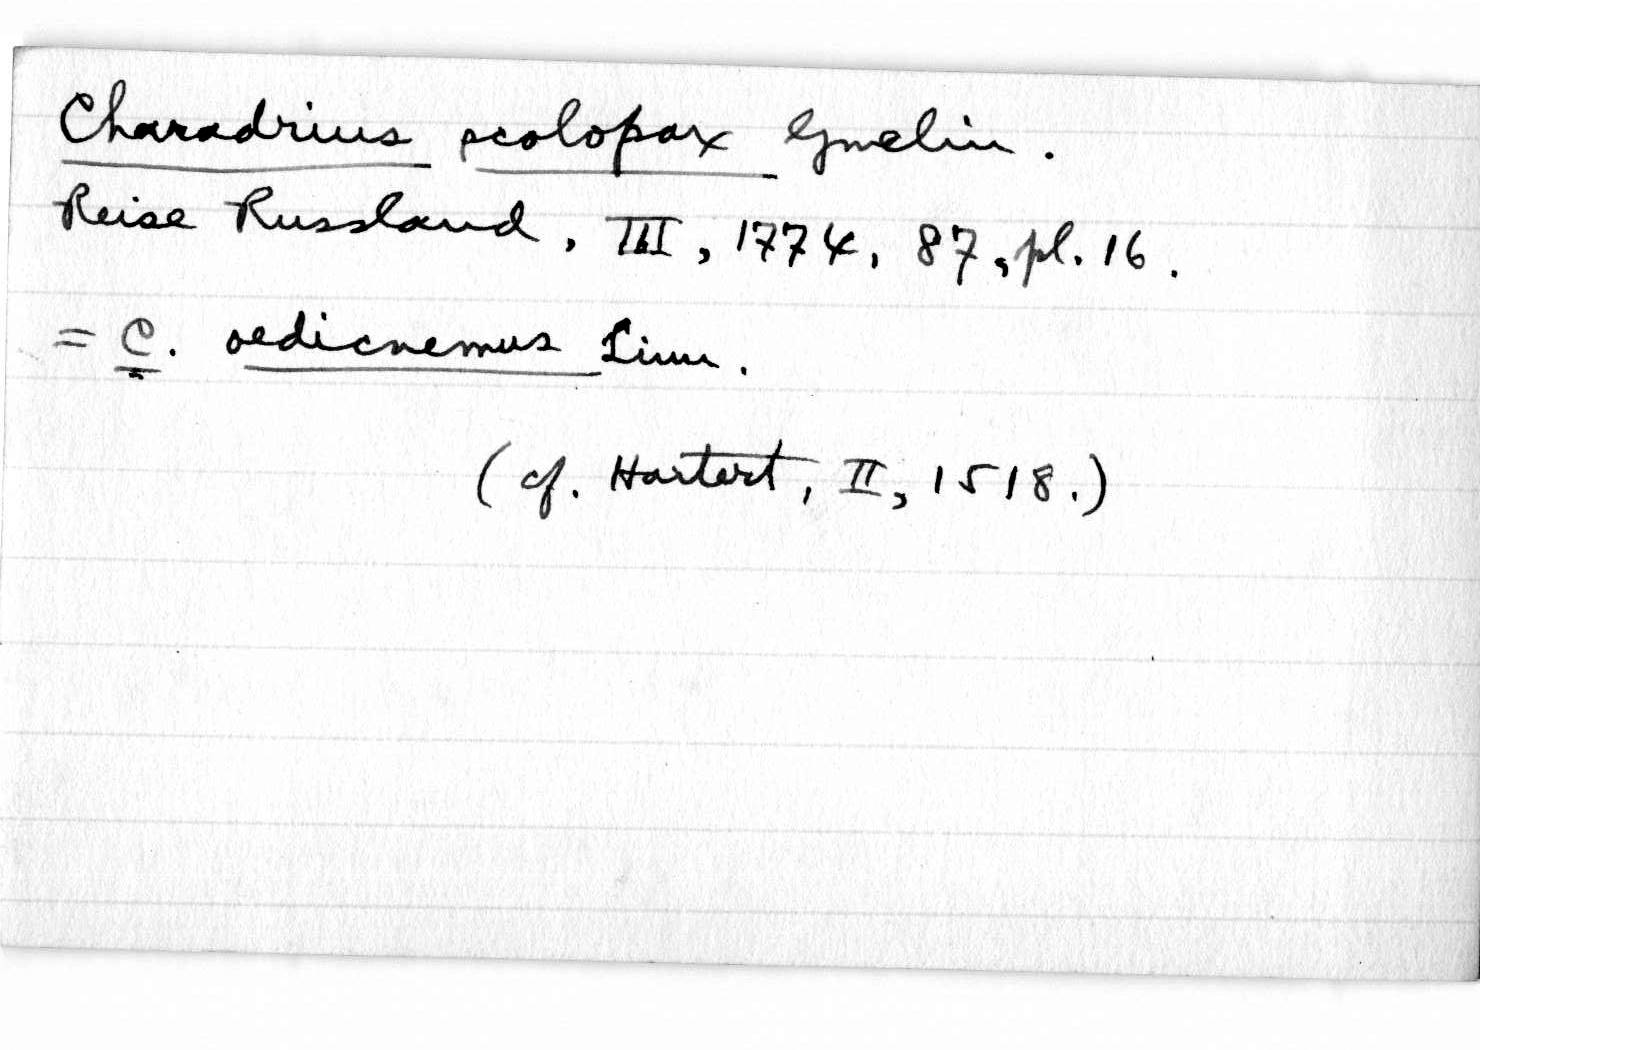 Charadrius scolopax Gmelin.
Reise Russland, III, 1774, 87, pl. 16.
= C. oedicnemus Linn.
(cf. Hartert, II, 1518.)